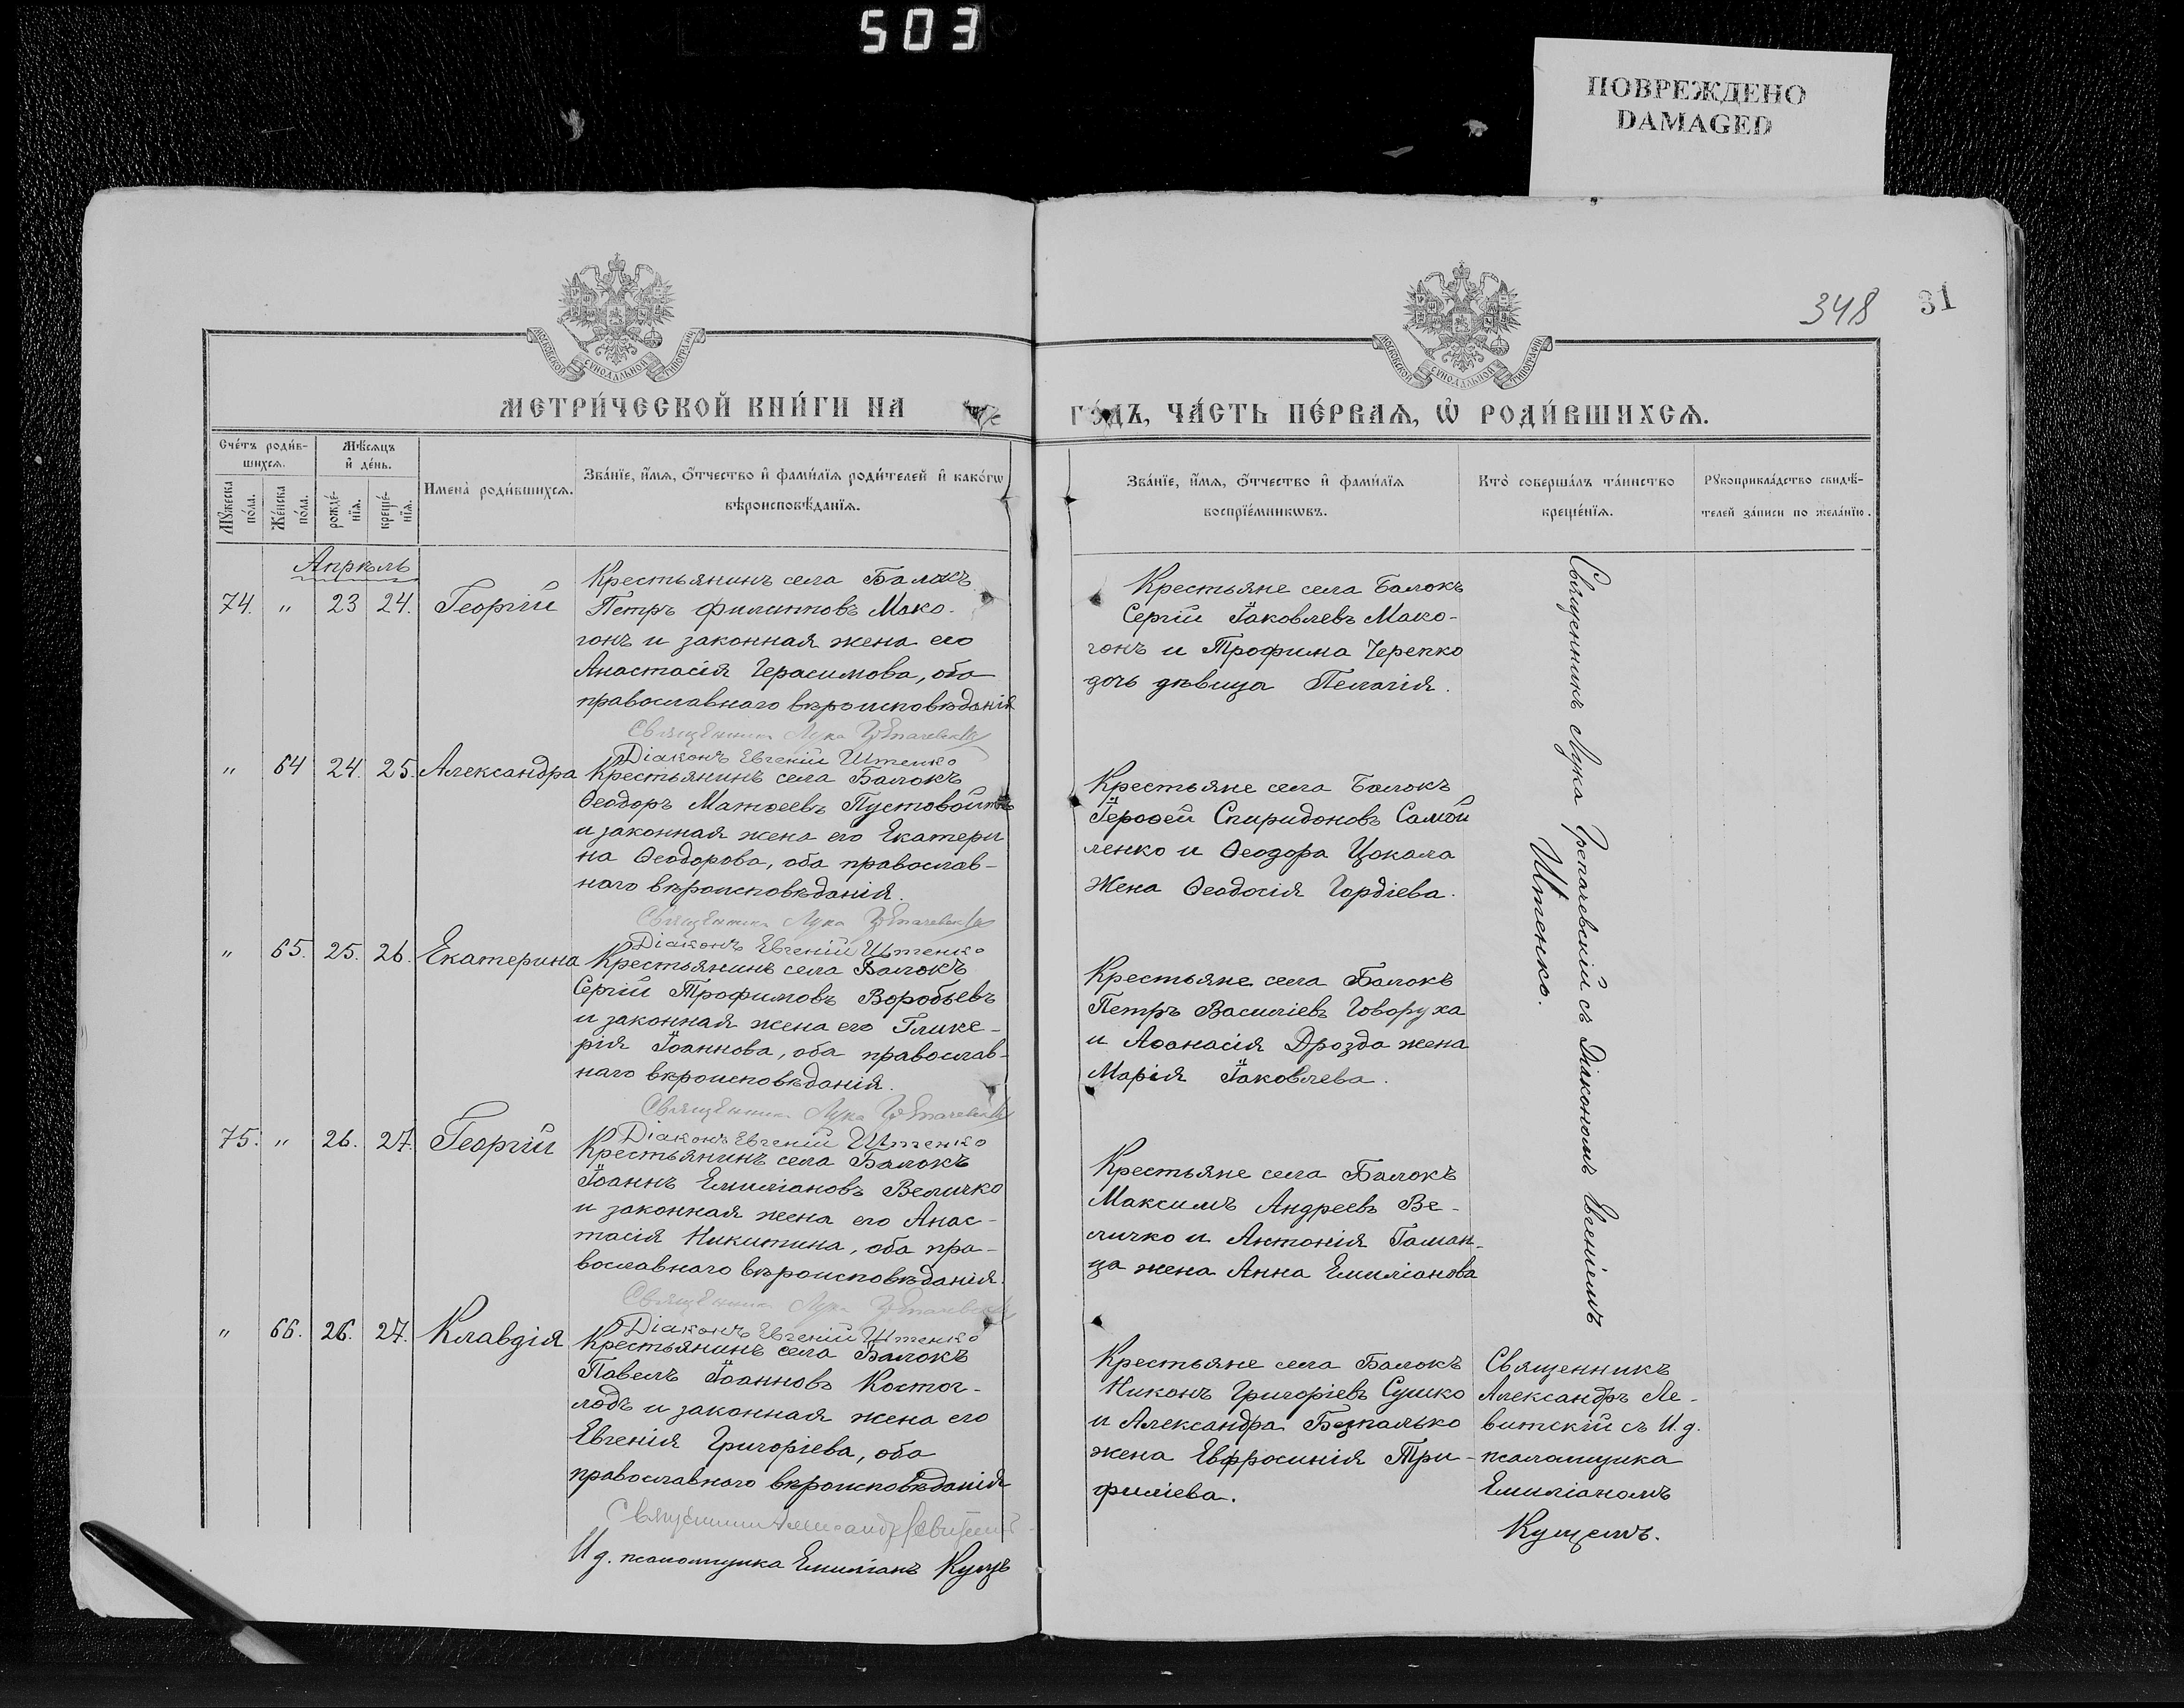 503
ПОВРЕЖДЕНО
DAMAGED
348
31
МОСКОВСКОЙ СѴНОДАЛЬНОЙ ТИПОГРАФІИ
МОСКОВСКОЙ СѴНОДАЛЬНОЙ ТИПОГРАФІИ
МЕТРИ́ЧЕСКОЙ КНИ́ГИ НА
ГО́ДЪ, ЧА́СТЬ ПЕ́РВАѦ, Ѡ҆ РОДИ́ВШИХСѦ.
Сче́тъ роди́в-
шихсѧ.
Мѣ́сѧцъ
и҆ де́нь.
Мꙋ́жеска
по́ла.
Же́нска
по́ла.
рожде́-
нїѧ.
креще́-
нїѧ.
Имена̀ роди́вшихсѧ.
Зва́нїе, и҆́мѧ, ѻ҆́тчество и҆ фами́лїѧ роди́телей и҆ како́гѡ
вѣроисповѣ́данїѧ.
Зва́нїе, и҆́мѧ, ѻ҆́тчество и҆ фами́лїѧ
воспрїе́мникѡвъ.
Кто̀ соверша́лъ та́инство
креще́нїѧ.
Рꙋкоприкла́дство свидѣ́-
телей за́писи по жела́нїю.
Апрѣль
74. " 23 24. Георгій
Крестьянинъ села Балокъ
Петръ Филипповъ Мако-
гонъ и законная жена его
Анастасія Герасимова, оба
православнаго вѣроисповѣданія
Священникъ Лука
Діаконъ Евгеній Штенко
Крестьяне села Балокъ
Сергій Іаковлевъ Мако-
гонъ и Трофима Черепко
дочь дѣвица Пелагія.
" 64 24. 25. Александра
Крестьянинъ села Балокъ
Ѳеодоръ Матѳеевъ Пустовойтъ
и законная жена его Екатери
на Ѳеодорова, оба православ-
наго вѣроисповѣданія.
Священникъ Лука
Діаконъ Евгеній Штенко
Крестьяне села Балокъ
Іероѳей Спиридоновъ Самой
ленко и Ѳеодора Цокала
жена Ѳеодосія Гордіева.
" 65. 25. 26. Екатерина
Крестьянинъ села Балокъ
Сергій Трофимовъ Воробьевъ
и законная жена его Глике-
рія Іоаннова, оба православ-
наго вѣроисповѣданія.
Священникъ Лука
Діаконъ Евгеній Штенко
Крестьяне села Балокъ
Петръ Василіевъ Говоруха
и Аѳанасія Дрозда жена
Марія Іаковлева.
75. " 26. 27. Георгій
Крестьянинъ села Балокъ
Іоаннъ Емиліановъ Величко
и законная жена его Анас-
тасія Никитина, оба пра-
вославнаго вѣроисповѣданія.
Священникъ Лука
Діаконъ Евгеній Штенко
Крестьяне села Балокъ
Максимъ Андреевъ Ве-
личко и Антонія Гаман-
ца жена Анна Емиліанова
Священникъ Лука съ Діакономъ Евгеніемъ
Штенко.
" 66. 26. 27. Клавдія
Крестьянинъ села Балокъ
Павелъ Іоанновъ Костог-
лодъ и законная жена его
Евгенія Григоріева, оба
православнаго вѣроисповѣданія
Священникъ Александръ Левитскій
И д. псаломщика Емиліанъ Кущъ
Крестьяне села Балокъ
Никонъ Григоріевъ Сушко
и Александра Безпалько
жена Евфросинія Три-
филіева.
Священникъ
Александръ Ле-
витскій съ И. д.
псаломщика
Емиліаномъ
Кущемъ.